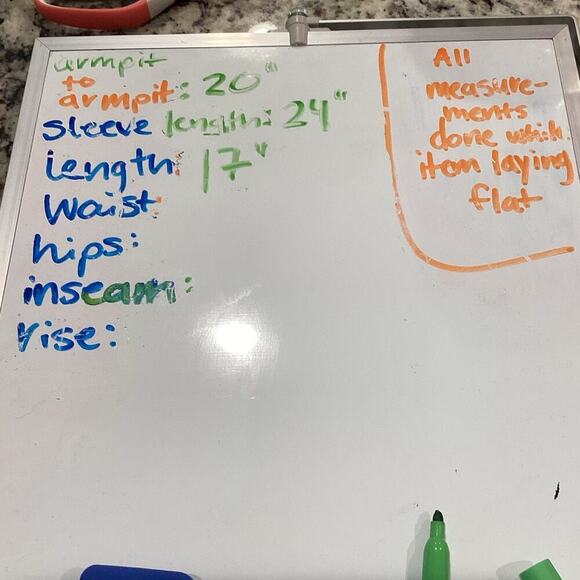 armpit
to
armpit: 20"
sleeve length: 24"
length: 17"
Waist:
hips:
inseam:
rise:
All
measure-
ments
done while
item laying
flat